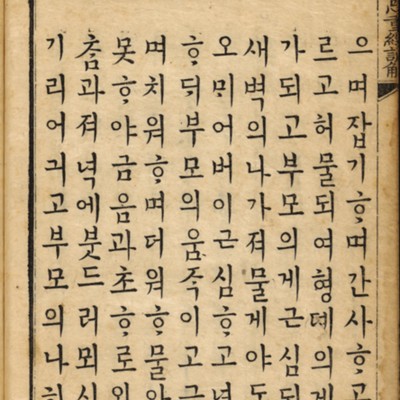 으며잡기ᄒᆞ며간사ᄒᆞ고
르고허물되여형뎨의게
가되고부모의게근심되
새벽의나가져물게야도
오ᄆᆡ어버이근심ᄒᆞ고녀
ᄒᆞᄃᆡ부모의움족이고
며치워ᄒᆞ며더워ᄒᆞ물아
못ᄒᆞ야금음과초ᄒᆞ로외
ᄎᆞᆷ과져녁에붓드러뫼시
기리어긔고부모의나히